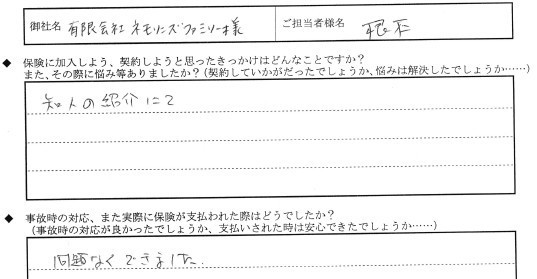 御社名 有限会社 ネモリズファミリー様 ご担当者様名 根本
◆ 保険に加入しよう、契約しようと思ったきっかけはどんなことですか?
また、その際に悩み等ありましたか?(契約していかがだったでしょうか、悩みは解決したでしょうか……)
知人の紹介にて
◆ 事故時の対応、また実際に保険が支払われた際はどうでしたか?
(事故時の対応が良かったでしょうか、支払いされた時は安心できたでしょうか……)
問題なくできました.